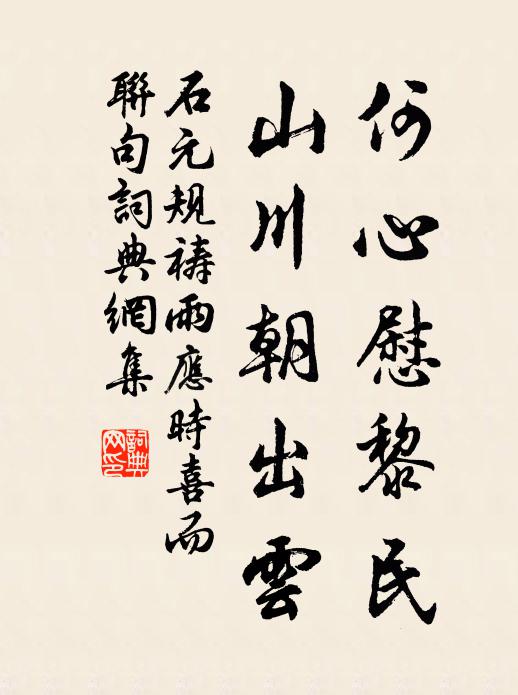 何心慰黎民
山川朝出雲
石元規禱雨應時喜而
聯句詞典網集
詞典
网印